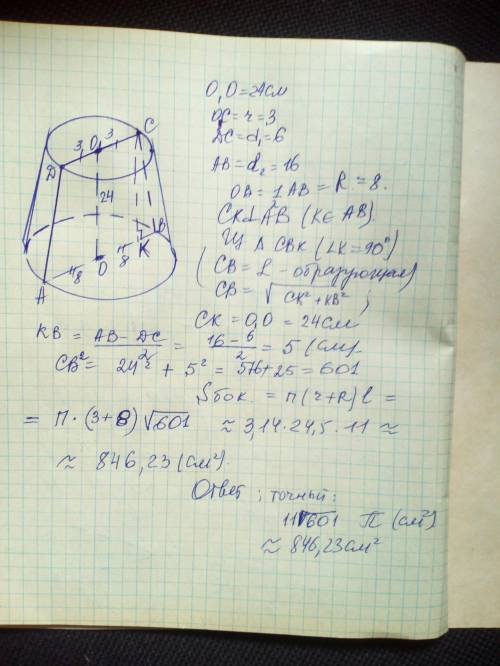 O₁O = 24см
O₁C = r = 3
DC = d₁ = 6
AB = d₂ = 16
OB = 1/2 AB = R = 8.
CK⊥AB (K∈AB).
Из Δ CBK (∠K=90°)
(CB = L - образующая)
CB = √CK²+KB² ;
CK = O₁O = 24см
KB = (AB - DC)/2 = (16 - 6)/2 = 5 (см).
CB² = 24² + 5² = 576 + 25 = 601
Sбок. = π(r+R)l =
= π·(3+8)√601 ≈ 3,14·24,5·11 ≈
≈ 846,23 (см²).
Ответ: точный:
11√601 π (см²)
≈ 846,23см²
3 O₁ 3 C
D
24
8 O 8 K B
A